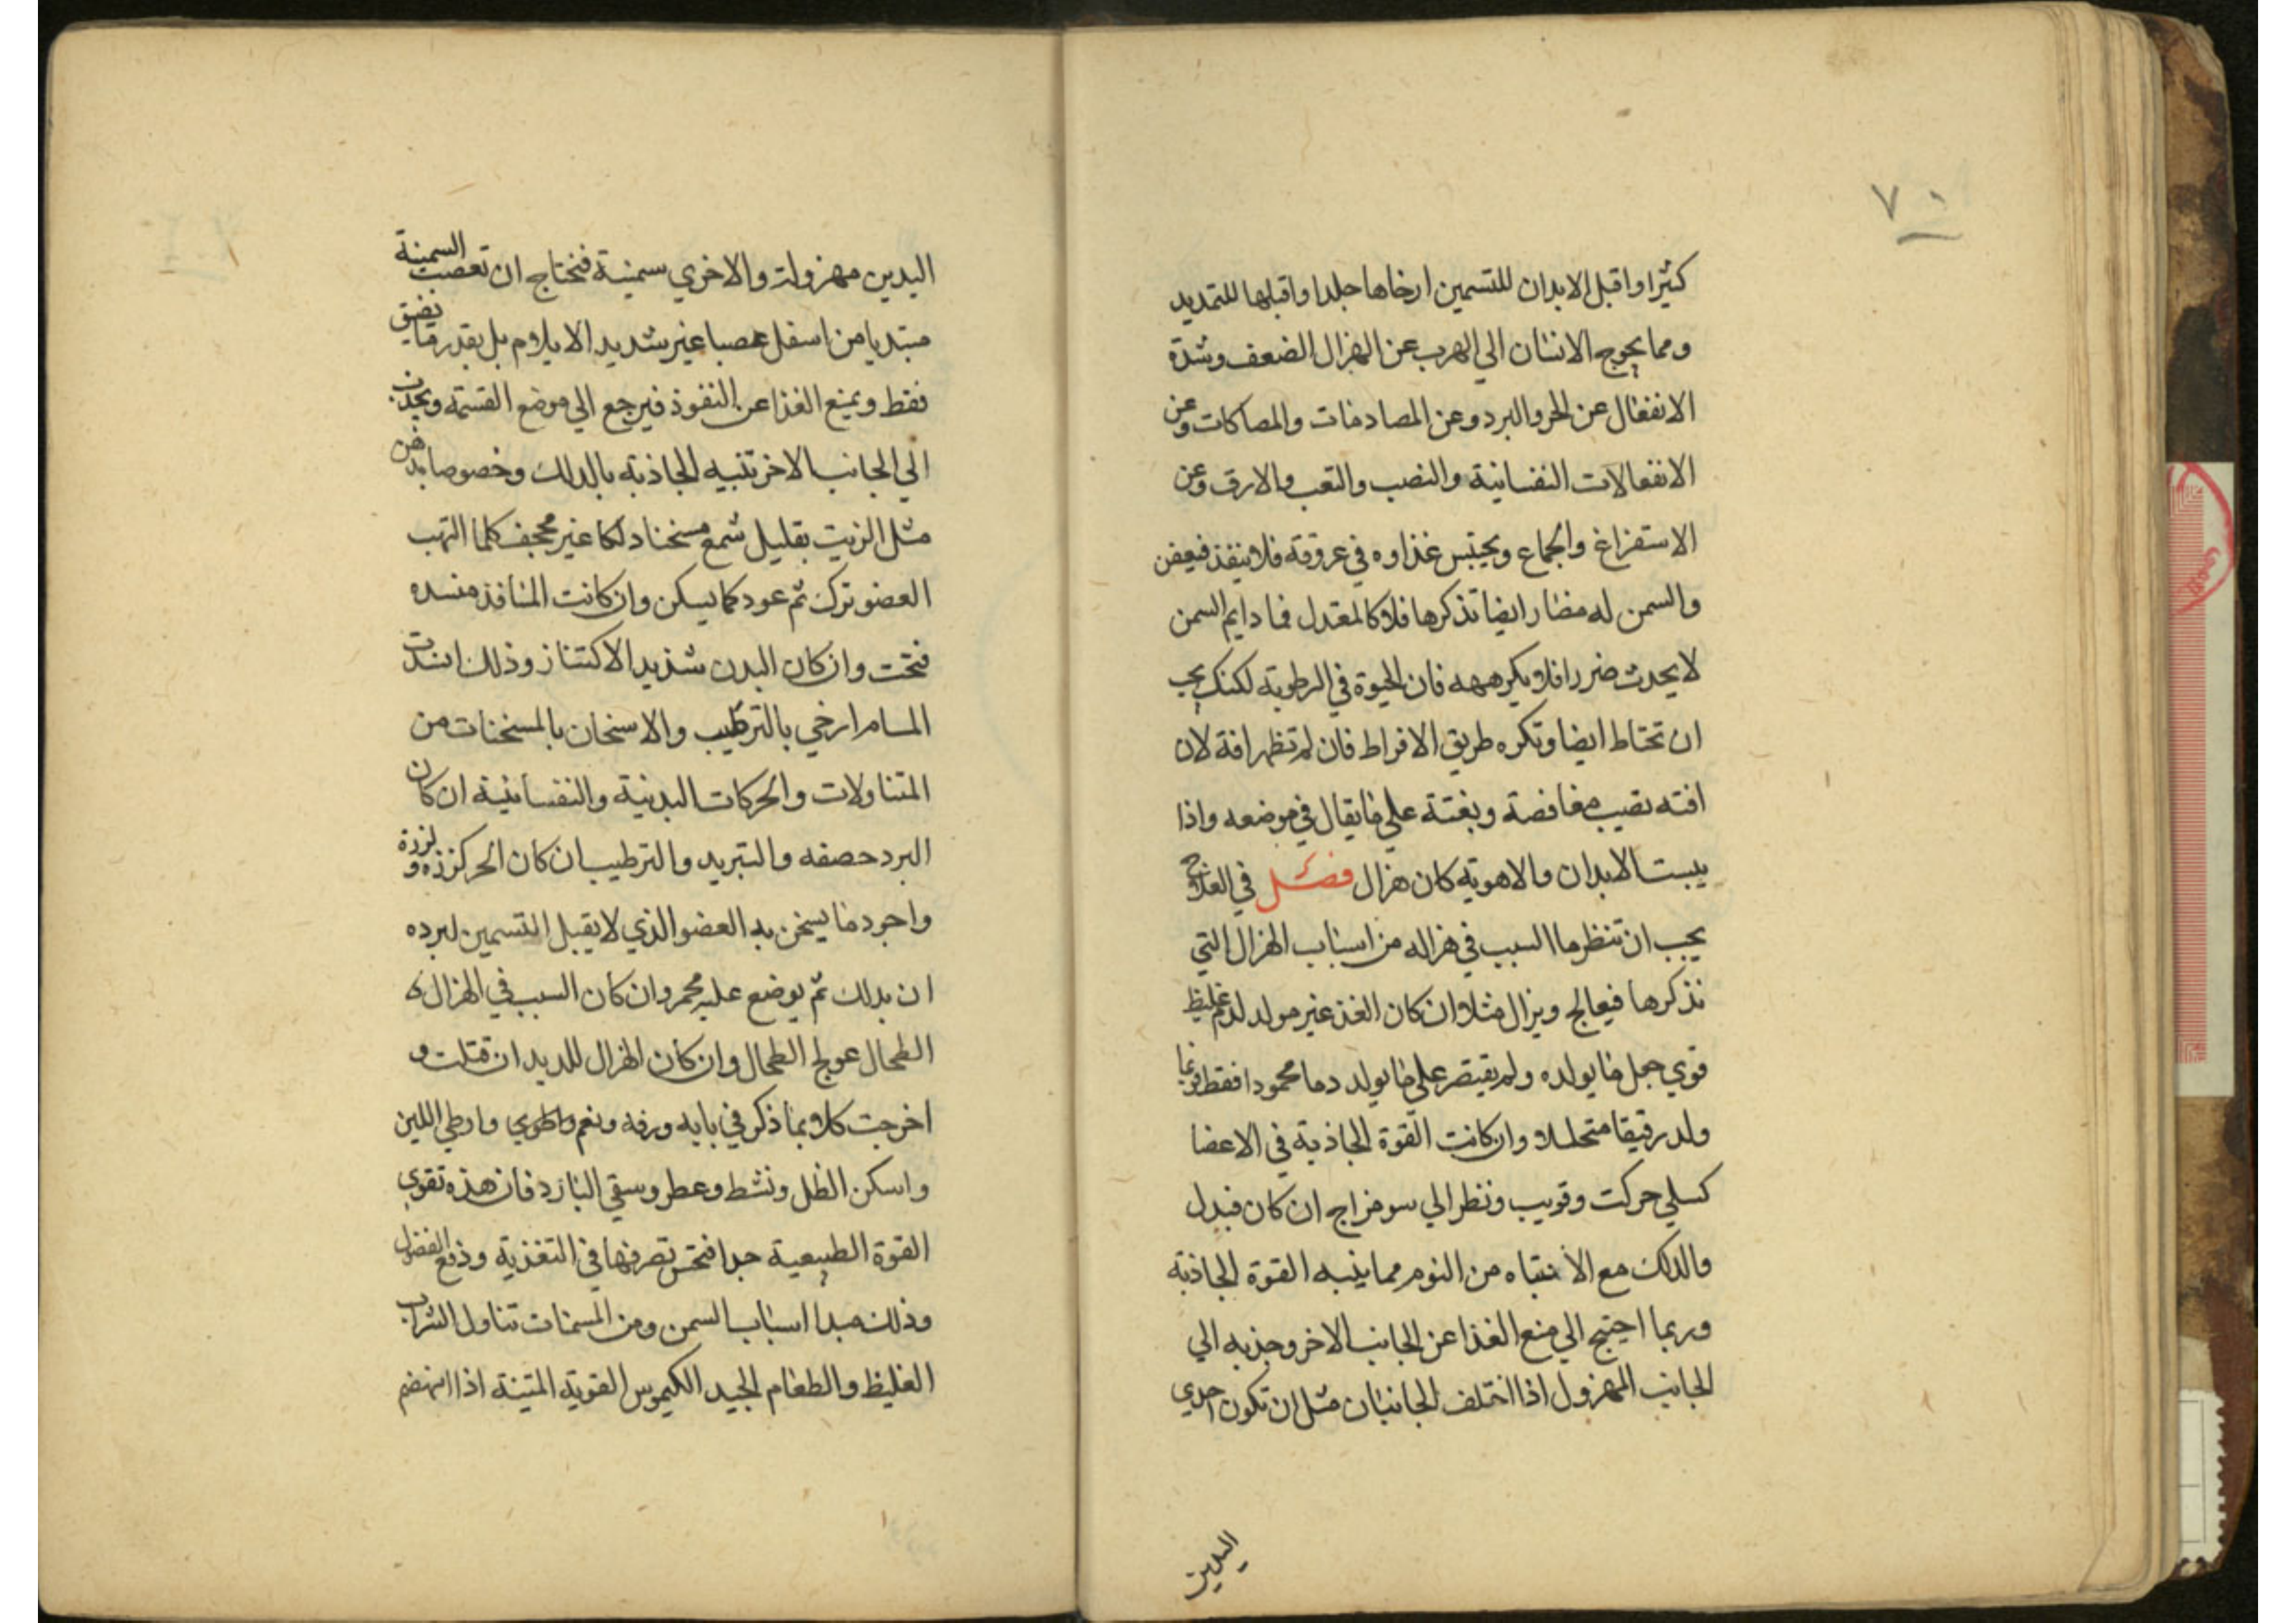 ٧٠
كثيرا واقبل الابدان للتسمين ارخاها جلدا واقبلها للتمديد
ومما يحوج الانسان الي الهرب عن الهزال الضعف وشدة
الانفعال عن الحر والبرد وعن المصادمات والمصاكات وعن
الانفعالات النفسانية والنصب والتعب والارق وعن
الاستفراغ والجماع ويحتبس غذاوه في عروقه فلا ينفذ فيعفن
والسمن له مضار ايضا تذكرها فلا كالمعتدل فما دايم السمن
لا يحدث ضررا فلا يكرهه فان الحيوة في الرطوبة لكنك يجب
ان تحتاط ايضا وتكره طريق الافراط فان لم تظهر افة لان
افته تصيب مغافصة وبغتة علي ما يقال في موضعه واذا
يبست الابدان والاهوية كان هزال فصل في العلاج
يجب ان تنظر ما السبب في هزاله من اسباب الهزال التي
نذكرها فيعالج ويزال مثلا ان كان الغذ غير مولد لدم غليظ
قوي جعل ما يولده ولم يقتصر علي ما يولد دما محمودا فقط فربما
ولد رقيقا متحللا وان كانت القوة الجاذبة في الاعضا
كسلي حركت وقويب ونظر الي سو مزاج ان كان فبدل
والدلك مع الانتباه من النوم مما ينبه القوة الجاذبة
وربما احتيج الي منع الغذا عن الجانب الاخر وجذبه الي
الجانب المهزول اذا اختلف الجانبان مثل ان تكون احدي
اليدين
اليدين مهزولة والاخري سمينة فتحتاج ان تعصب السمينة
مبتديا من اسفل عصبا غير شديد الايلام بل بقدر ما يضيق
فقط ويمنع الغذا عن النفوذ فيرجع الي موضع القسمة ويجذب
الي الجانب الاخر تنبيه الجاذبة بالدلك وخصوصا بدهن
مثل الزيت بقليل شمع مسخنا دلكا غير مجحف كلما التهب
العضو ترك ثم عود كما يسكن وان كانت المنافذ منسده
فتحت وان كان البدن شديد الاكتناز وذلك انسدت
المسام ارخي بالترطيب والاسخان بالمسخنات من
المتناولات والحركات البدنية والنفسانية ان كان
البرد حصفه والتبريد والترطيب ان كان الحر كززه و لززه
واجود ما يسخن به العضو الذي لا يقبل التسمين لبرده
ان يدلك ثم يوضع عليه محمر وان كان السبب في الهزال
الطحال عولج الطحال وان كان الهزال للديدان قتلت و
اخرجت كلا بما ذكر في بابه ورفه ونعم واطوي واوطي اللين
واسكن الظل ونشط وعطر وسقي البارد فان هذه تقوي
القوة الطبيعية جدا فتحسن تصرفها في التغذية ودفع الفضول
وذلك مبدا اسباب السمن ومن المسمنات تناول الشراب
الغليظ والطعام الجيد الكيموس القوية المتينة اذا انهضم